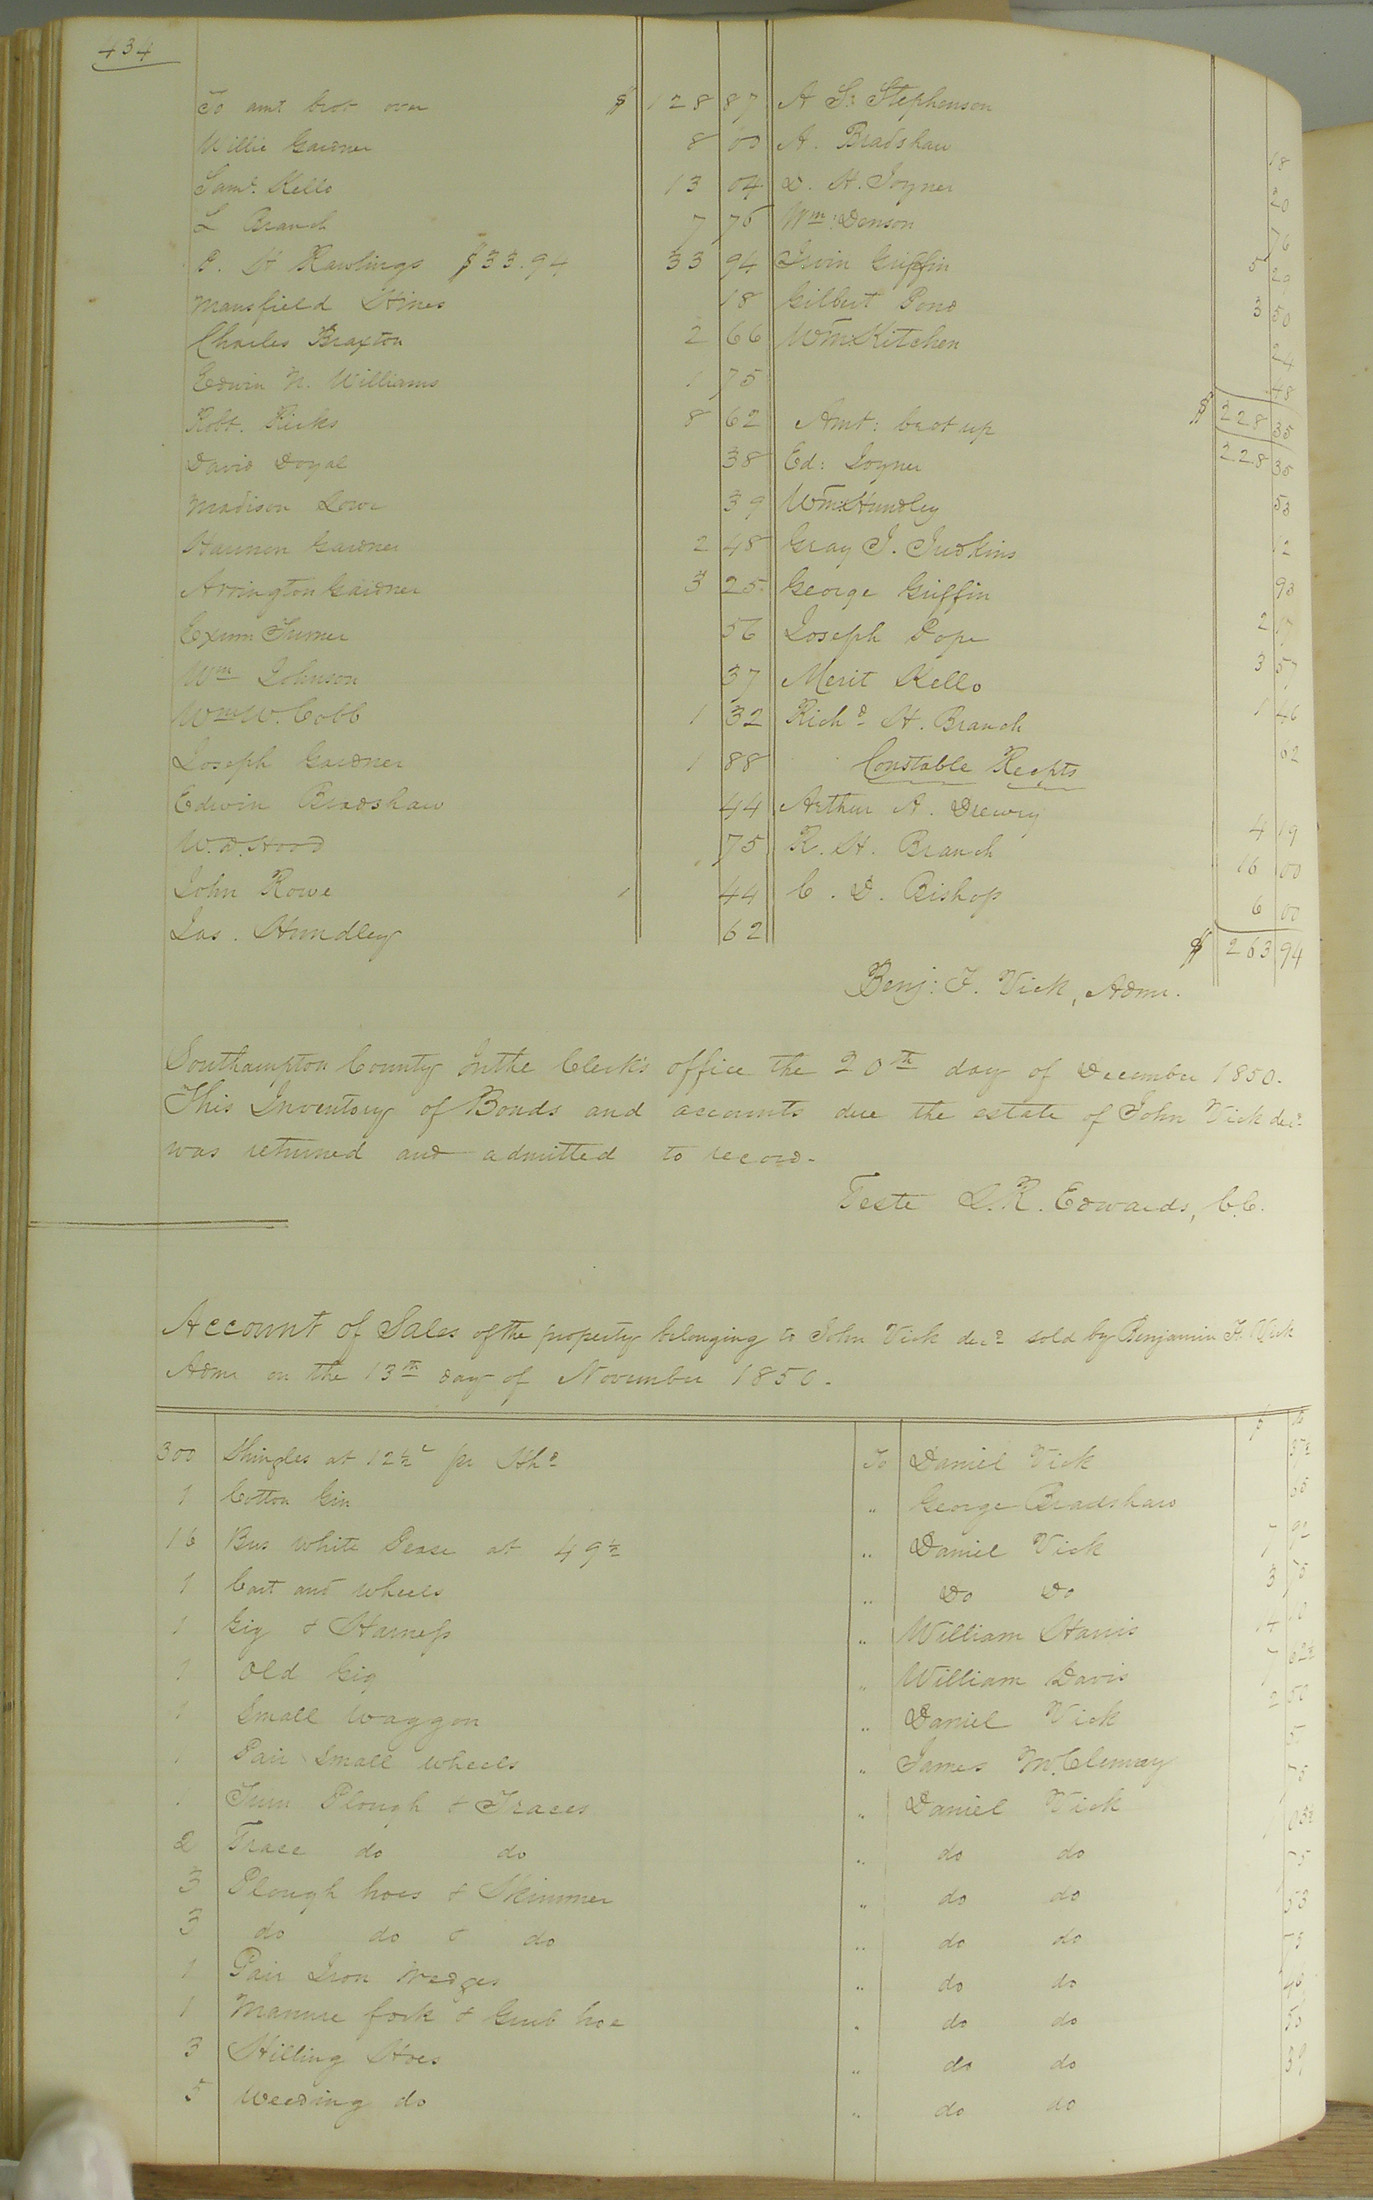 434
To amt brot over $ 128 87
Willie Gardner 8 00
Saml. Kello 13 04
L Branch 7 76
P. H Rawlings $33.94 33 94
Mansfield Hines 18
Charles Braxton 2 66
Edwin N. Williams 1 75
Robt. Ricks 8 62
David Doyal 38
Madison Lowe 39
Harmon Gardner 2 48
Arrington Gardner 3 25
Exum Turner 56
Wm Johnson 37
Wm W. Cobb 1 32
Joseph Gardner 1 88
Edwin Bradshaw 44
W. D. Hood 75
John Rowe 44
Jas. Hundley 62
A S: Stephenson 18
A. Bradshaw 20
D. H. Joyner 76
Wm: Denson 5 29
Irvin Griffin 3 50
Gilbert Pond 24
Wm: Kitchen 48
$ 228 35
Amt: brot up 228 35
Ed: Joyner 53
Wm: Hundley 12
Gray J. Judkins 93
George Griffin 2 17
Joseph Pope 3 57
Merit Kello 1 46
Richd H. Branch 62
Constable Recpts
Arthur A. Drewry 4 19
R. H. Branch 16 00
C. D. Bishop 6 00
$ 263 94
Benj: F. Vick, Admr.
Southampton County In the Clerk's office the 20th day of December 1850.
This Inventory of Bonds and accounts due the estate of John Vick decd
was returned and admitted to record.
Teste L. R. Edwards, C.C.
Account of Sales of the property belonging to John Vick decd sold by Benjamin F. Vick
Admr on the 13th day of November 1850.
300 Shingles at 12½ c pr Hhd To Daniel Vick 37½
1 Cotton Gin " George Bradshaw 35
16 Bus White Pease at 49½ " Daniel Vick 7 92
1 Cart and Wheels " Do Do 3 75
1 Gig & Harness " William Harris 14 10
1 Old Gig " William Davis 7 02½
1 Small Waggon " Daniel Vick 2 50
1 Pair Small wheels " James McClemny
1 Turn Plough & Traces " Daniel Vick 75
2 Trace do do " do do 1 03½
3 Plough hoes & Skimmer " do do 75
3 do do & do " do do 53
1 Pair Iron Wedges " do do 75
1 Manure fork & Grub hoe " do do
3 Hilling Hoes " do do 50
5 Weeding do " do do 39